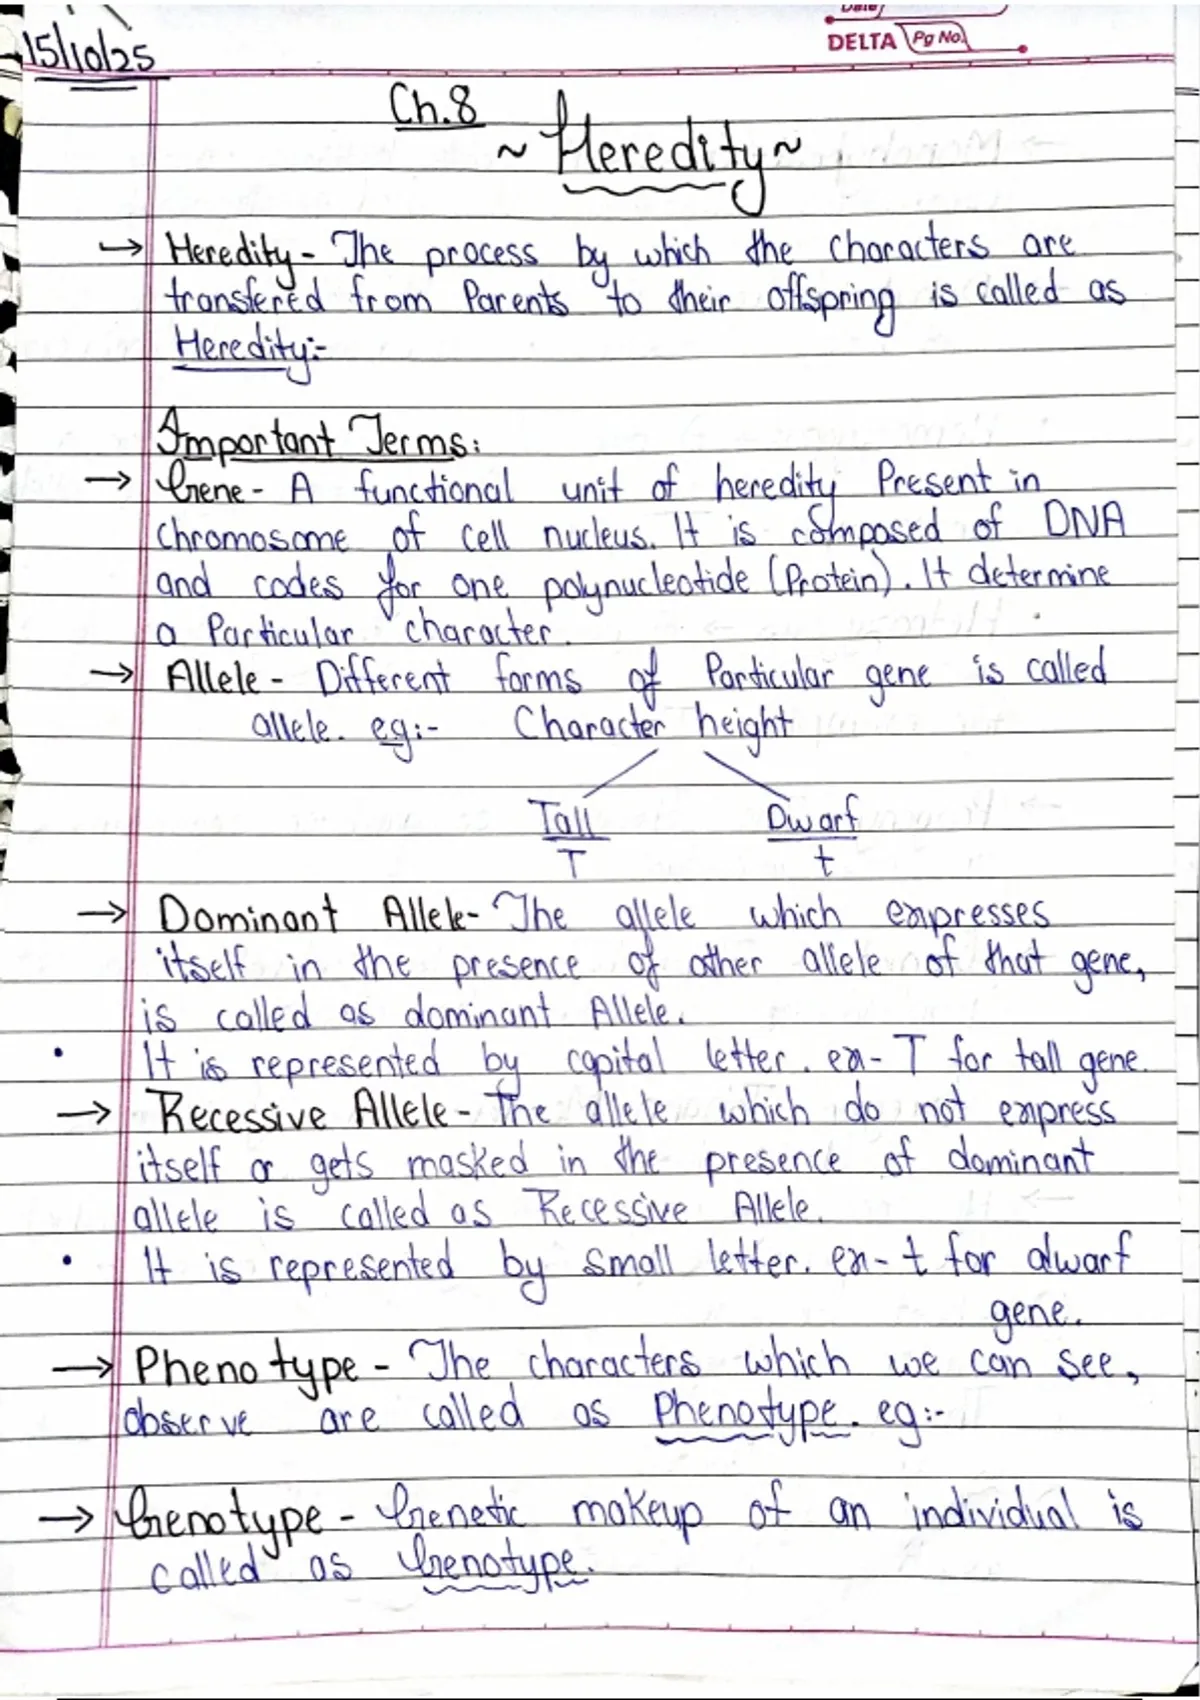 Date
15/10/25
DELTA Pg No.
Ch.8
~ Heredity ~
→ Heredity - The process by which the characters are
transfered from Parents to their offspring is called as
Heredity:-
Important Terms:
→ Gene - A functional unit of heredity Present in
chromosome of cell nucleus. It is composed of DNA
and codes for one polynucleotide (Protein). It determine
a Particular character.
→ Allele - Different forms of Particular gene is called
allele. eg:- Character height
Tall Dwarf
T t
→ Dominant Allele - The allele which expresses
itself in the presence of other allele of that gene,
is called as dominant Allele.
• It is represented by capital letter. ex- T for tall gene.
→ Recessive Allele - The allele which do not express
itself or gets masked in the presence of dominant
allele is called as Recessive Allele.
• It is represented by small letter. ex- t for dwarf
gene.
→ Phenotype - The characters which we can see,
observe are called as Phenotype. eg:-
→ Genotype - Genetic makeup of an individual is
called as Genotype.